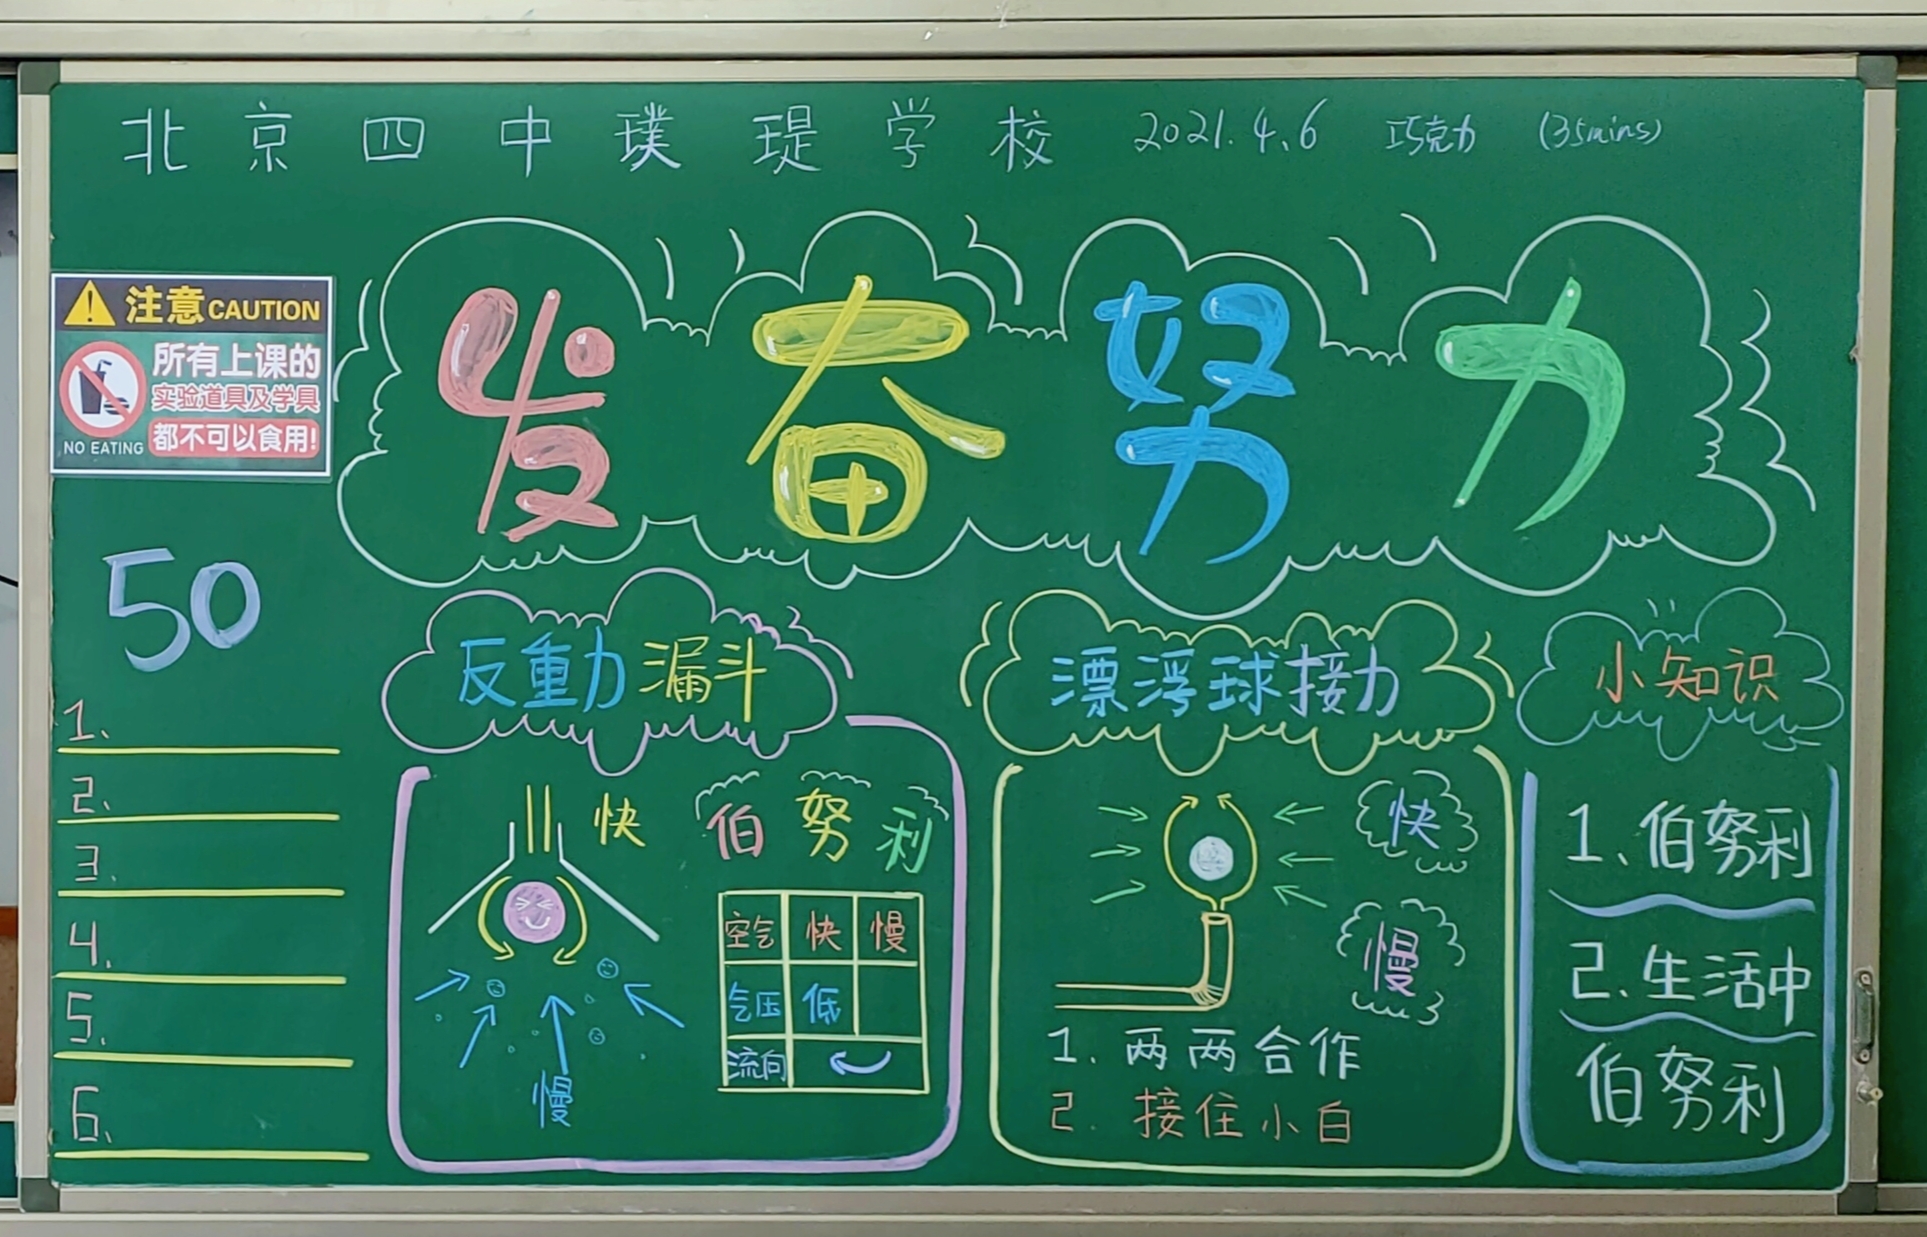 北京四中璞瑅学校 2021.4.6 巧克力 (35mins)
注意CAUTION
所有上课的
实验道具及学具
都不可以食用!
NO EATING
发奋努力
50
1.
2.
3.
4.
5.
6.
反重力漏斗
快
伯努利
空气 快 慢
气压 低
流向
慢
漂浮球接力
快
慢
1. 两两合作
2. 接住小白
小知识
1、伯努利
2.生活中
伯努利